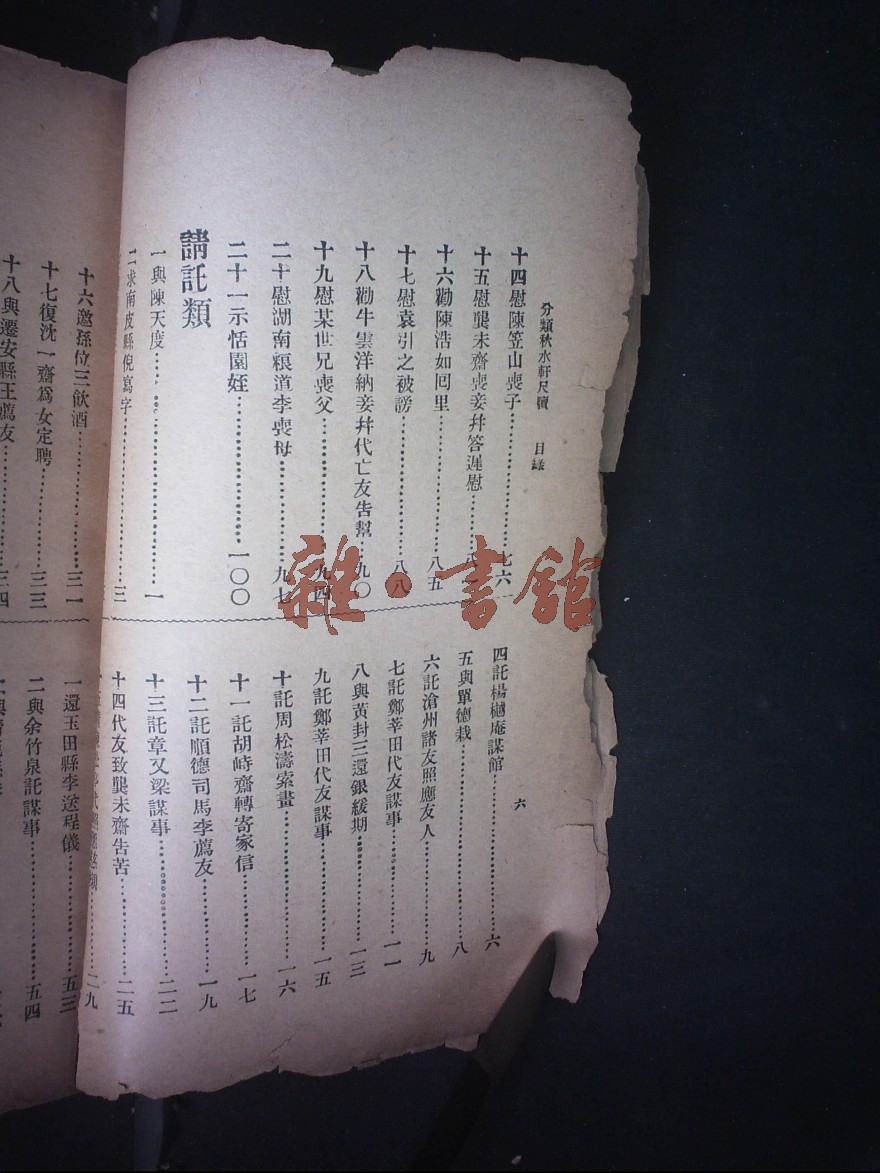 分類秋水軒尺牘　目錄　六
十四慰陳笠山喪子……七六
十五慰龔未齋喪妾幷答遲慰……八
十六勸陳浩如回里……八五
十七慰袁引之被謗……八八
十八勸牛雲洋納妾幷代亡友告幫…九〇
十九慰某世兄喪父……九四
二十慰湖南粮道李喪母……九七
二十一示恬園姪……一〇〇
請託類
一與陳天度……一
二求南皮縣倪寫字……三
四託楊樾庵謀館……六
五與單德栽……八
六託滄州諸友照應友人……九
七託鄭莘田代友謀事……一一
八與黃封三還銀緩期……一三
九託鄭莘田代友謀事……一五
十託周松濤索畫……一六
十一託胡峙齋轉寄家信……一七
十二託順德司馬李薦友……一九
十三託章又梁謀事……二二
十四代友致龔未齋告苦……二五
二九
十六邀孫位三飲酒……三一
十七復沈一齋爲女定聘……三三
十八與遷安縣王薦友……三四
一還玉田縣李送程儀……五三
二與余竹泉託謀事……五四
雜·書館